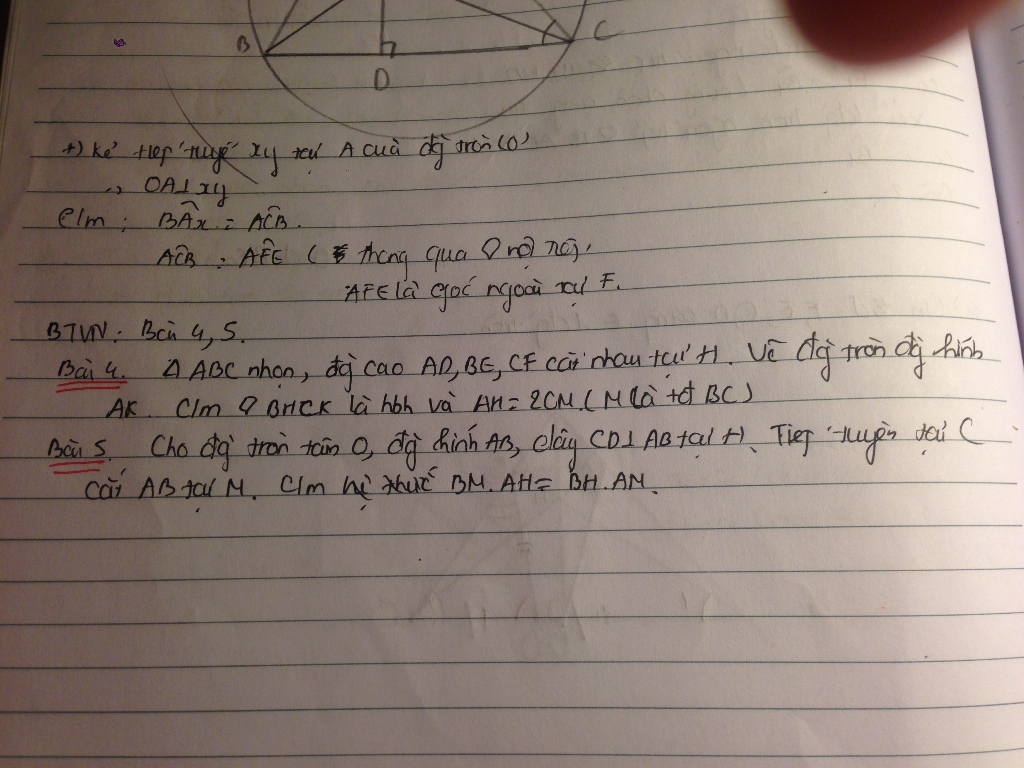 B
C
D
+) Kẻ tiếp tuyến xy tại A của đg tròn (O)
OA⊥xy
C/m : BÂx = AĈB.
AĈB = AF̂E ( thông qua ◊ nội
AFE là góc ngoài tại F.
BTVN: Bài 4, 5.
Bài 4. Δ ABC nhọn, đg cao AD, BE, CF cắt nhau tại H. Vẽ đg tròn đg kính
AK. C/m ◊ BHCK là hbh và AH = 2OM. (M là tđ BC)
Bài 5. Cho đg tròn tâm O, đg kính AB, dây CD⊥AB tại H. Tiếp tuyến tại C
cắt AB tại M. C/m hệ thức BM.AH = BH.AM.